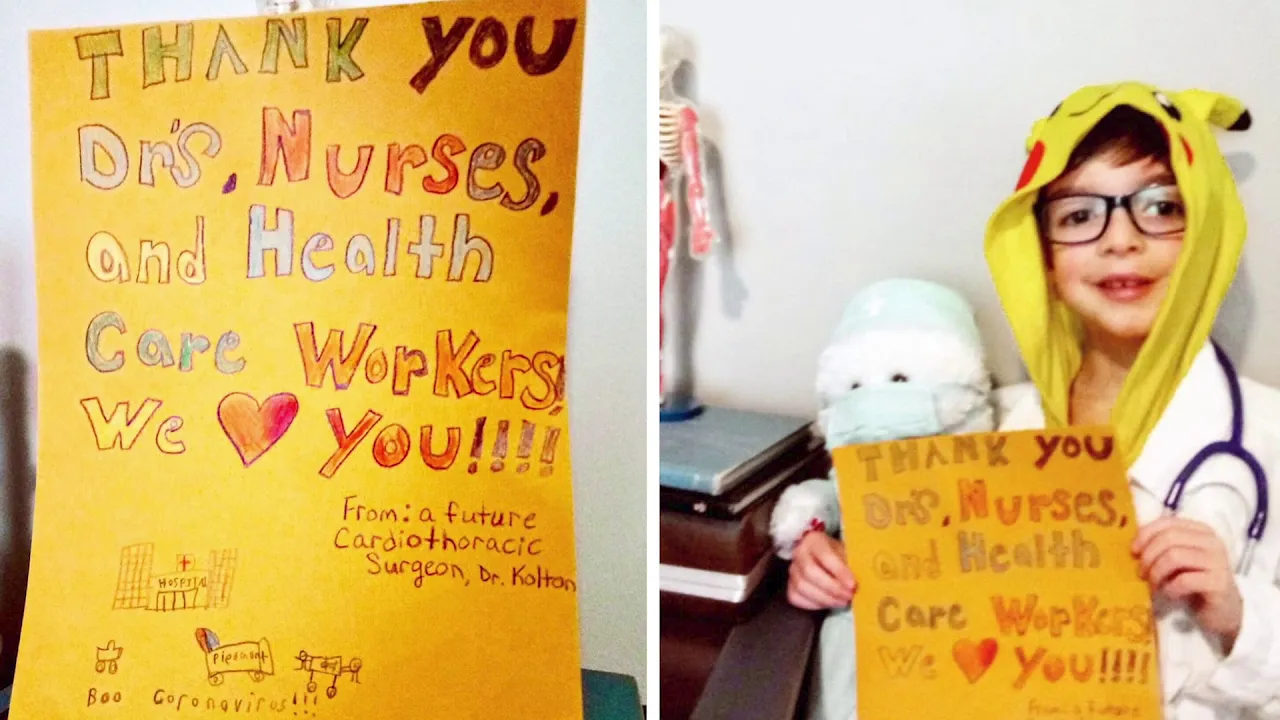 THANK YOU
Dr's, Nurses,
and Health
Care Workers!
We YOU!!!!
From: a future
Cardiothoracic
Surgeon, Dr. Kolton
HOSPITAL
Piedmont
Boo Coronavirus!!!
THANK YOU
Dr's, Nurses,
and Health
Care Workers!
We YOU!!!!
From: a future